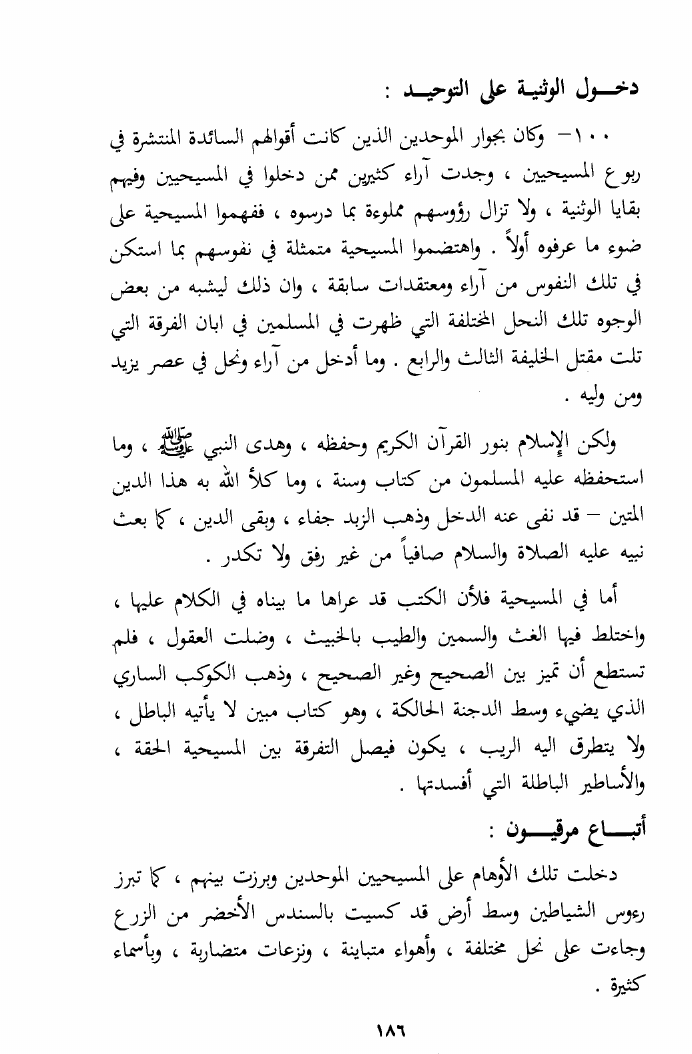 دخول الوثنية على التوحيد :
١٠٠ – وكان بجوار الموحدين الذين كانت أقوالهم السائدة المنتشرة في
ربوع المسيحيين ، وجدت آراء كثيرين ممن دخلوا في المسيحيين وفيهم
بقايا الوثنية ، ولا تزال رؤوسهم مملوءة بما درسوه ، ففهموا المسيحية على
ضوء ما عرفوه أولاً . واهتضموا المسيحية متمثلة في نفوسهم بما استكن
في تلك النفوس من آراء ومعتقدات سابقة ، وان ذلك ليشبه من بعض
الوجوه تلك النحل المختلفة التي ظهرت في المسلمين في ابان الفرقة التي
تلت مقتل الخليفة الثالث والرابع . وما أدخل من آراء ونحل في عصر يزيد
ومن وليه .
ولكن الإسلام بنور القرآن الكريم وحفظه ، وهدى النبي ﷺ ، وما
استحفظه عليه المسلمون من كتاب وسنة ، وما كلأ الله به هذا الدين
المتين – قد نفى عنه الدخل وذهب الزبد جفاء ، وبقى الدين ، كما بعث
نبيه عليه الصلاة والسلام صافياً من غير رفق ولا تكدر .
أما في المسيحية فلأن الكتب قد عراها ما بيناه في الكلام عليها ،
واختلط فيها الغث والسمين والطيب بالخبيث ، وضلت العقول ، فلم
تستطع أن تميز بين الصحيح وغير الصحيح ، وذهب الكوكب الساري
الذي يضيء وسط الدجنة الحالكة ، وهو كتاب مبين لا يأتيه الباطل ،
ولا يتطرق اليه الريب ، يكون فيصل التفرقة بين المسيحية الحقة ،
والأساطير الباطلة التي أفسدتها .
أتباع مرقيون :
دخلت تلك الأوهام على المسيحيين الموحدين وبرزت بينهم ، كما تبرز
رءوس الشياطين وسط أرض قد كسيت بالسندس الأخضر من الزرع
وجاءت على نحل مختلفة ، وأهواء متباينة ، ونزعات متضاربة ، وبأسماء
كثيرة .
١٨٦